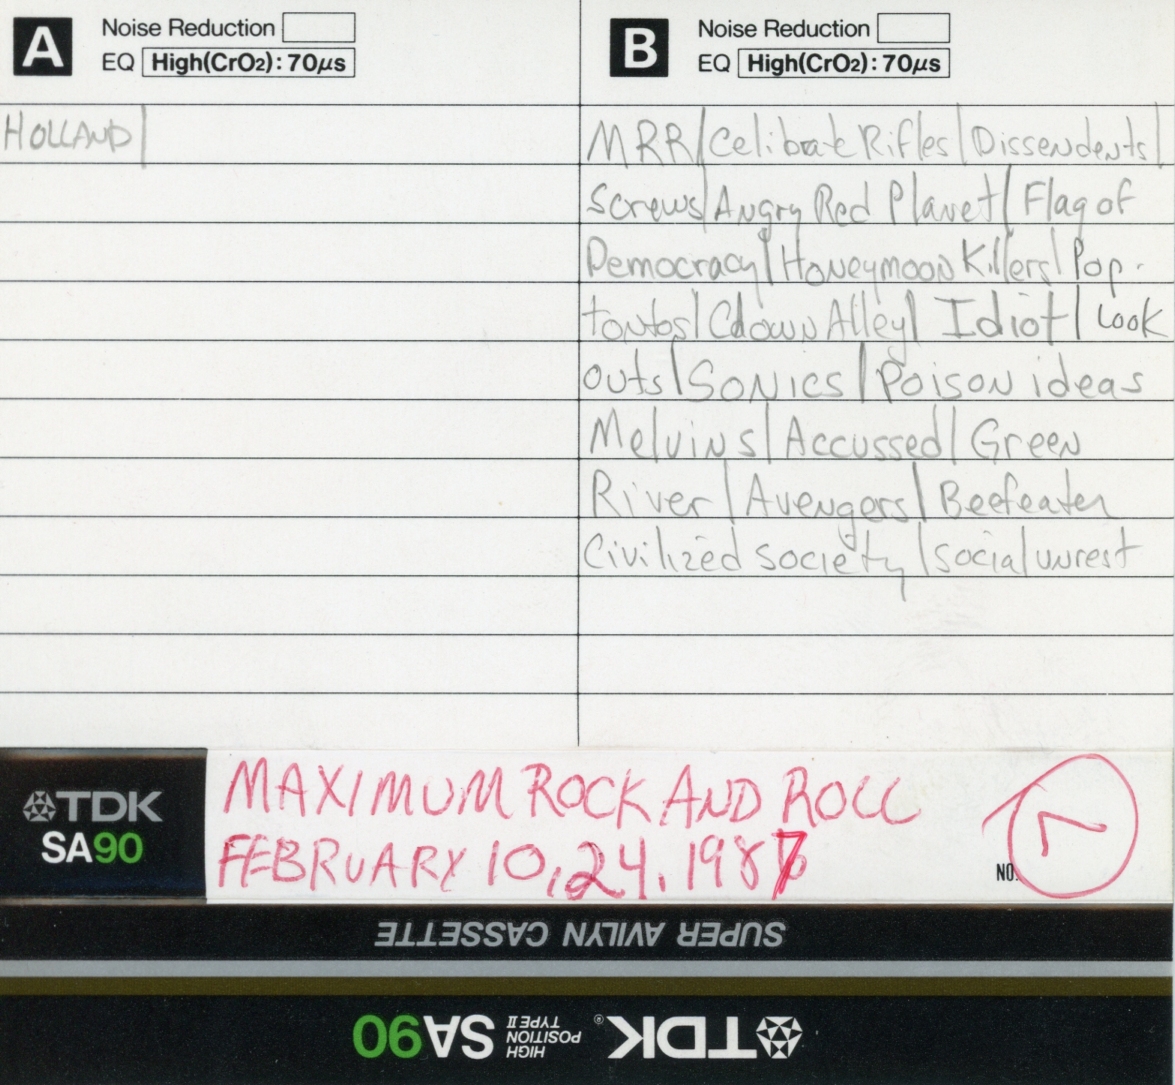 A Noise Reduction
EQ High(CrO2): 70μs
HOLLAND|
B Noise Reduction
EQ High(CrO2): 70μs
MRR/Celibate Rifles|Dissendents|
Screws|Angry Red Planet/Flag of
Democracy|Honeymoon Killers|Pop-
tontos|Cdown Alley| Idiot|Look
outs|SONICS|Poison ideas
Melvins|Accussed|Green
River|Avengers|Beefeater
Civilized society|social unrest
TDK
SA90
MAXIMUM ROCK AND ROLL
FEBRUARY 10,24,1987
NO.
SUPER AVILYN CASSETTE
TDK® HIGH POSITION TYPE II SA90